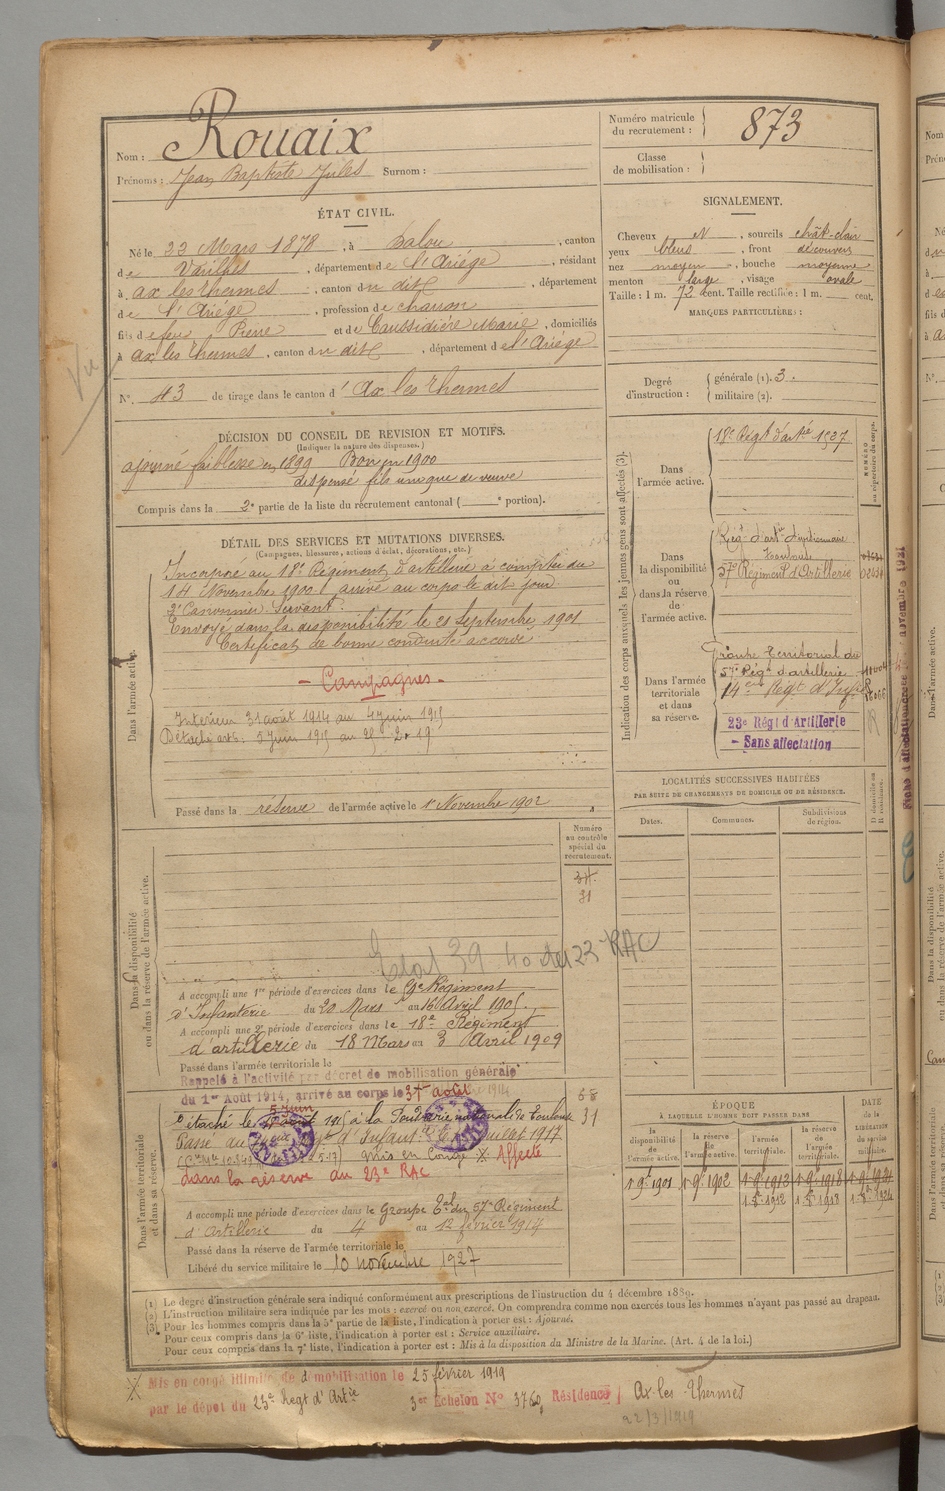 Nom : Rouaix
Prénoms : Jean Baptiste Jules Surnom :
Numéro matricule du recrutement : 873
Classe de mobilisation :
ÉTAT CIVIL.
Né le 22 Mars 1878, à Dalou, canton
de Varilhes, département de l'Ariège, résidant
à ax les thermes, canton du dit, département
de l'Ariège, profession de charron
fils de feu Pierre et de Caussidière Marie, domiciliés
à ax les thermes, canton du dit, département de l'Ariège
N° 43 de tirage dans le canton d'Ax les thermes
SIGNALEMENT.
Cheveux N, sourcils chât-clair
yeux bleus, front découvert
nez moyen, bouche moyenne
menton large, visage ovale
Taille : 1 m. 72 cent. Taille rectifiée : 1 m. cent.
MARQUES PARTICULIÈRES :
Degré d'instruction : générale (1). 3.
militaire (2).
DÉCISION DU CONSEIL DE REVISION ET MOTIFS.
(Indiquer la nature des dispenses.)
ajourné faiblesse en 1899 Bon en 1900
dispensé fils unique de veuve
Compris dans la 2e partie de la liste du recrutement cantonal ( e portion).
DÉTAIL DES SERVICES ET MUTATIONS DIVERSES.
(Campagnes, blessures, actions d'éclat, décorations, etc.)
Dans l'armée active.
Incorporé au 18e Régiment d'artillerie à compter du
14 Novembre 1900 arrivé au corps le dit jour
2e Canonnier Servant.
Envoyé dans la disponibilité le 21 Septembre 1901
Certificat de bonne conduite accordé
- Campagnes -
Intérieur 31 août 1914 au 4 juin 1915
Détaché art. : 5 Juin 1915 au 25-2-19
Passé dans la réserve de l'armée active le 1er Novembre 1902
Indication des corps auxquels les jeunes gens sont affectés (3).
NUMÉRO au répertoire du corps.
Dans l'armée active.
18e Régt d'artie 1527
Dans la disponibilité ou dans la réserve de l'armée active.
Régt d'artie divisionnaire
Toulouse
57e Régiment d'Artillerie
Dans l'armée territoriale et dans sa réserve.
Groupe territorial du
57e Régt d'artillerie
14e Régt d'Infie
23e Régt d'Artillerie
- Sans affectation
LOCALITÉS SUCCESSIVES HABITÉES
PAR SUITE DE CHANGEMENTS DE DOMICILE OU DE RÉSIDENCE.
Dates. Communes. Subdivisions de région. D domicile ou R résidence.
Numéro au contrôle spécial du recrutement.
31
Dans la disponibilité ou dans la réserve de l'armée active.
39 40 du 23 RAC
A accompli une 1re période d'exercices dans le 9e Régiment
d'Infanterie du 20 Mars au 16 Avril 1905
A accompli une 2e période d'exercices dans le 18e Régiment
d'artillerie du 18 Mars au 3 Avril 1909
Passé dans l'armée territoriale le
Rappelé à l'activité par décret de mobilisation générale
du 1er Août 1914, arrivé au corps le 31 août 1914
Dans l'armée territoriale et dans sa réserve.
5 juin
Détaché le 1915 à la Poudrerie nationale de Toulouse
31
Passé au d'Infanterie le juillet 1917
mis en congé Affecté
dans la réserve au 23e RAC
A accompli une période d'exercices dans le Groupe Tal du 57e Régiment
d'Artillerie du 4 au 12 février 1914
Passé dans la réserve de l'armée territoriale le
Libéré du service militaire le 10 novembre 1927
ÉPOQUE
À LAQUELLE L'HOMME DOIT PASSER DANS
DATE de la LIBÉRATION du service militaire.
la disponibilité de l'armée active. la réserve de l'armée active. l'armée territoriale. la réserve de l'armée territoriale.
1 9bre 1901 1 9bre 1902 1 9bre 1913 1 9bre 1918 1 9bre 1924
1 8bre 1912 1 8bre 1918 1 8bre 1924
(1) Le degré d'instruction générale sera indiqué conformément aux prescriptions de l'instruction du 4 décembre 1889.
(2) L'instruction militaire sera indiquée par les mots : exercé ou non exercé. On comprendra comme non exercés tous les hommes n'ayant pas passé au drapeau.
(3) Pour les hommes compris dans la 5e partie de la liste, l'indication à porter est : Ajourné.
Pour ceux compris dans la 6e liste, l'indication à porter est : Service auxiliaire.
Pour ceux compris dans la 7e liste, l'indication à porter est : Mis à la disposition du Ministre de la Marine. (Art. 4 de la loi.)
Mis en congé illimité de démobilisation le 25 février 1919
par le dépôt du 23e Régt d'Artie 3er Echelon N° 3760, Résidence Ax-les-Thermes
22/3/1919